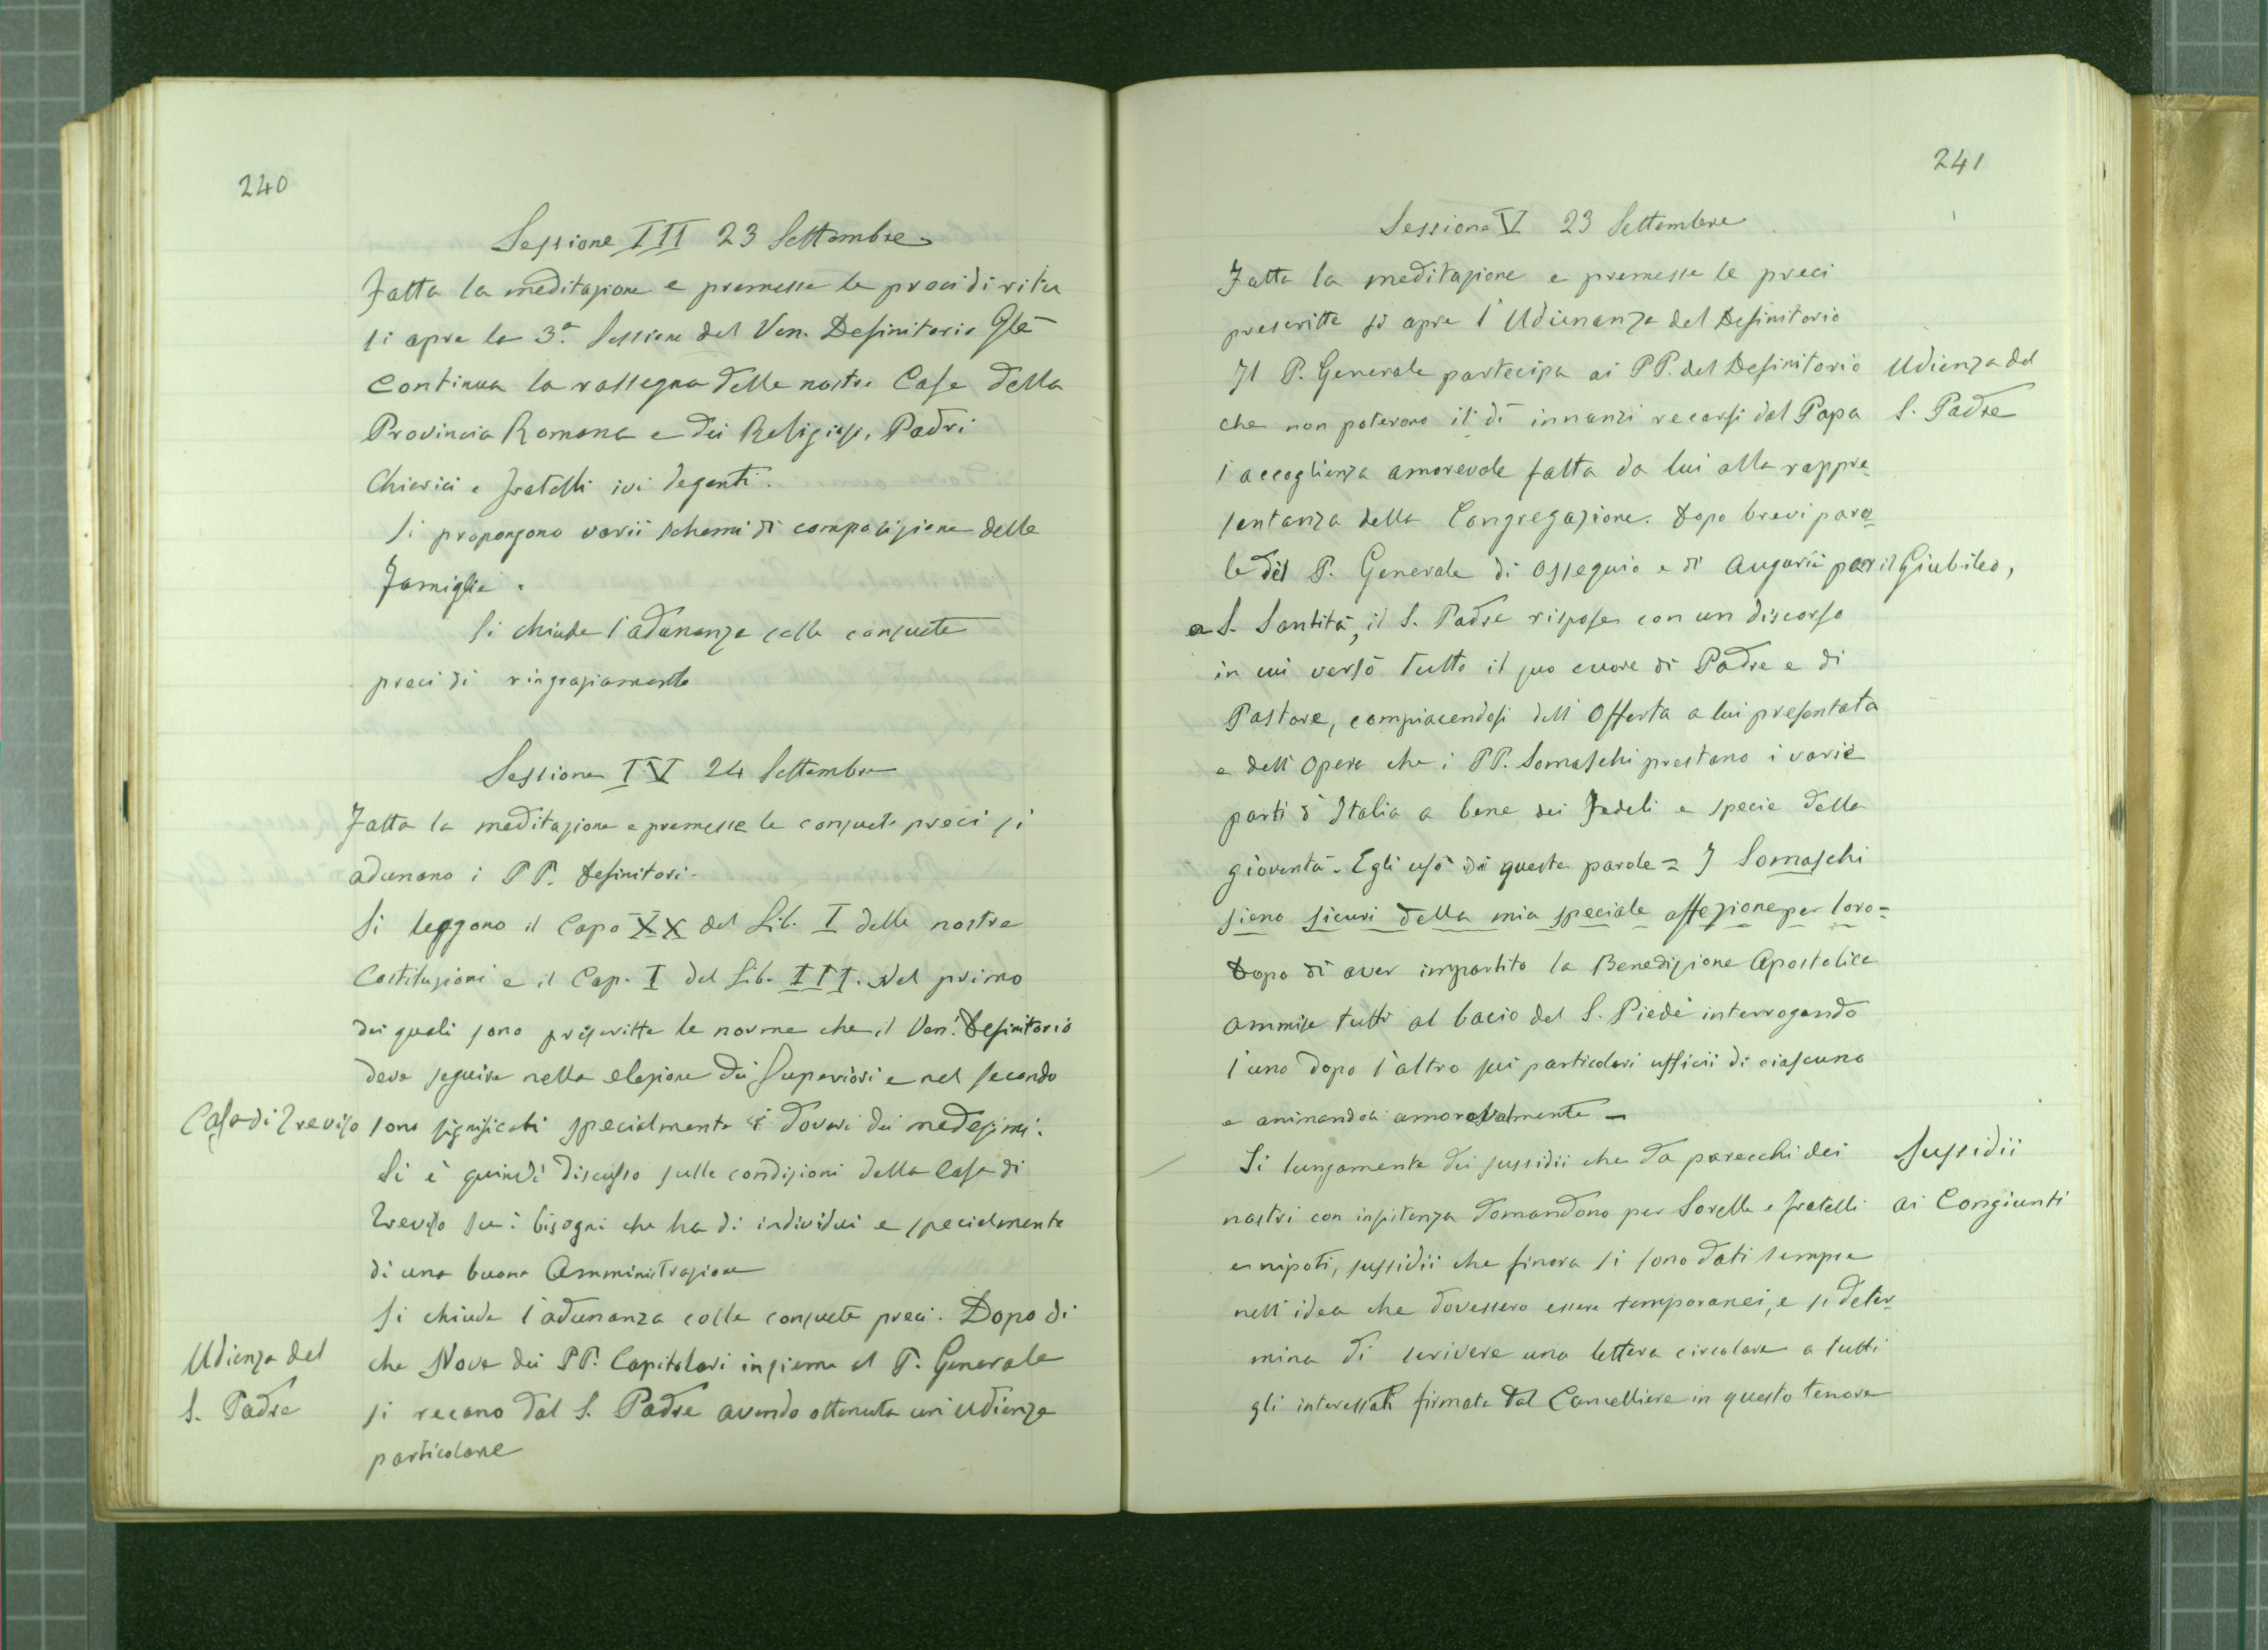 240
Sessione III 23 Settembre
Fatta la meditazione e premesse le preci di rito
si apre la 3ª Sessione del Ven. Definitorio Gle
continua la rassegna delle nostre Case della
Provincia Romana e dei Religiosi, Padri
Chierici e fratelli ivi degenti.
Si propongono varii schemi di composizione delle
famiglie.
Si chiude l'adunanza colle consuete
preci di ringraziamento
Sessione IV 24 Settembre
Fatta la meditazione e premesse le consuete preci si
adunano i PP. Definitori.
Si leggono il Capo XX del Lib. I delle nostre
Costituzioni e il Cap. I del Lib. III. Nel primo
dei quali sono prescritte le norme che il Ven. Definitorio
deve seguire nella elezione dei Superiori e nel secondo
Casa di Treviso
sono significati specialmente i doveri dei medesimi.
Si è quindi discusso sulle condizioni della Casa di
Treviso su i bisogni che ha di individui e specialmente
di una buona Amministrazione
Si chiude l'adunanza colle consuete preci. Dopo di
Udienza del
S. Padre
che Nove dei PP. Capitolari insieme al P. Generale
si recano dal S. Padre avendo ottenuta un'udienza
particolare
241
Sessione V 23 Settembre
Fatta la meditazione e premesse le preci
prescritte si apre l'Udienanza del Definitorio
Il P. Generale partecipa ai PP. del Definitorio
Udienza del
S. Padre
che non poterono il dì innanzi recarsi dal Papa
l'accoglienza amorevole fatta da lui alla rappre=
sentanza della Congregazione. Dopo brevi paro=
le del P. Generale di ossequio e di Augurii per il Giubileo,
a S. Santità, il S. Padre rispose con un discorso
in cui versò tutto il suo cuore di Padre e di
Pastore, compiacendosi dell'Offerta a lui presentata
e dell'Opera che i PP. Somaschi prestano i varie
parti d'Italia a bene dei Fedeli e specie della
gioventà. Egli usò di queste parole = I Somaschi
sieno sicuri della mia speciale affezione per loro=
Dopo di aver impartito la Benedizione Apostolica
ammise tutti al bacio del S. Piede interrogando
l'uno dopo l'altro sui particolari ufficii di ciascuno
e animandoli amorevolmente –
Si lungamente dei sussidii che da parecchi dei
Sussidii
ai Congiunti
nostri con insistenza domandono per Sorelle e fratelli
e nipoti, sussidii che finora si sono dati sempre
nell'idea che dovessero essere temporanei, e si deter=
mina di scrivere una lettera circolare a tutti
gli interessati firmata dal Cancelliere in questo tenore